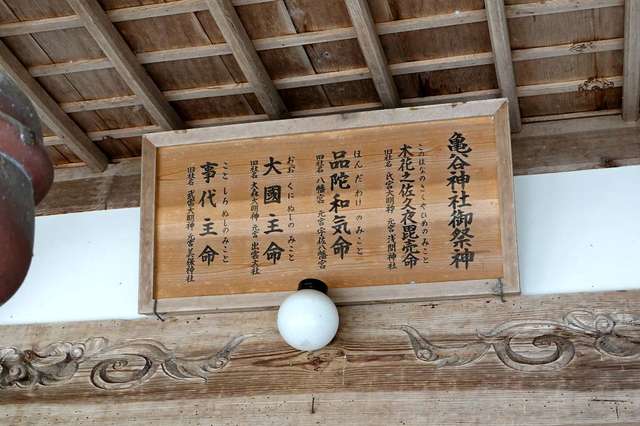 亀谷神社御祭神
このはなのさくやひめのみこと
木花之佐久夜毘売命
旧社名 氏宮大明神 元宮 浅間神社
ほんだわけのみこと
品陀和気命
旧社名 八幡宮 元宮 宇佐八幡宮
おおくにぬしのみこと
大國主命
旧社名 大森大明神 元宮 出雲大社
ことしろぬしのみこと
事代主命
旧社名 武宮大明神 元宮 美保神社